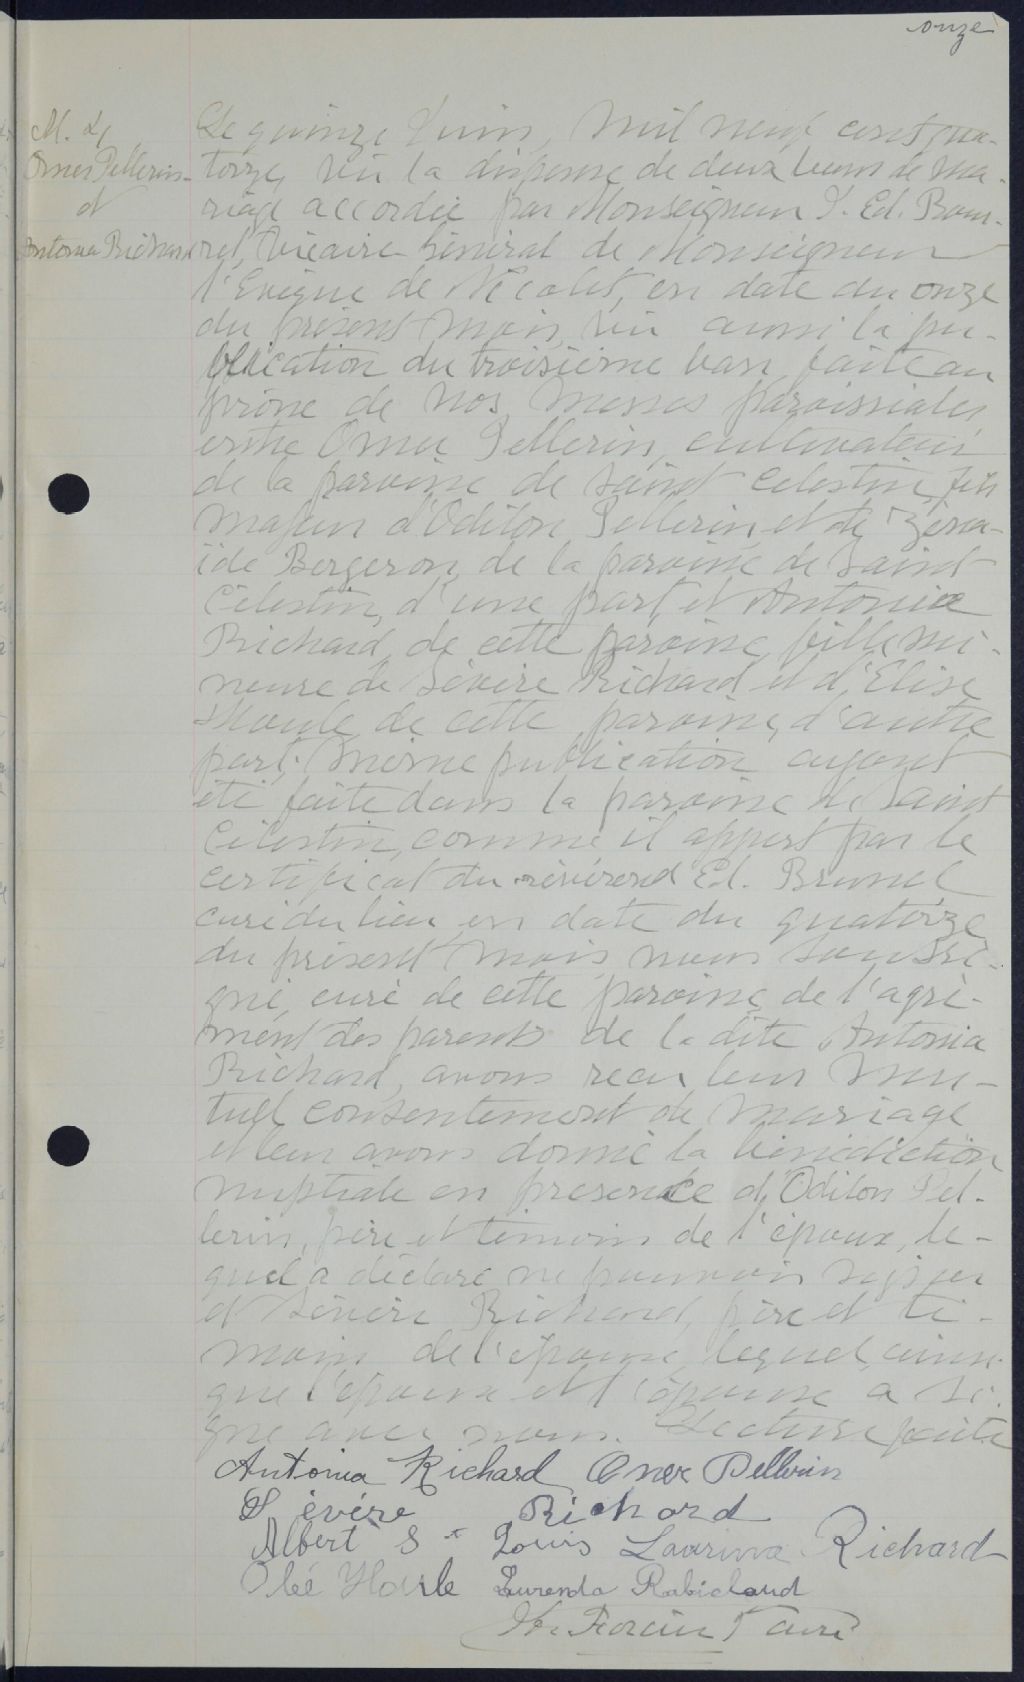 onze
M. 4
Omer Pellerin
et
Antonia Richard
Le quinze Juin, mil neuf cent qua-
torze, vu la dispense de deux bans de ma-
riage accordée par Monseigneur J. Ed. Bour-
ret, Vicaire Général de Monseigneur
l'Evêque de Nicolet, en date du onze
du présent mois, vu aussi la pu-
blication du troisième ban faite au
prône de nos messes paroissiales
entre Omer Pellerin, cultivateur
de la paroisse de Saint Celestin, fils
majeur d'Odilon Pellerin et de Zéna-
ide Bergeron, de la paroisse de Saint
Célestin, d'une part, et Antonia
Richard, de cette paroisse, fille mi-
neure de Sévère Richard et d'Elise
Houle de cette paroisse, d'autre
part; même publication ayant
été faite dans la paroisse de Saint
Célestin, comme il appert par le
certificat du révérend Ed. Brunel
curé du lieu en date du quatorze
du présent mois, nous soussi-
gné, curé de cette paroisse, de l'agré-
ment des parents de la dite Antonia
Richard, avons reçu leur mu-
tuel consentement de mariage
et leur avons donné la bénédiction
nuptiale en présence d'Odilon Pel-
lerin, père et témoin de l'époux, le-
quel a déclaré ne pouvoir signer
et Sévère Richard, père et té-
moin de l'épouse, lequel, ainsi
que l'époux et l'épouse a si-
gné avec nous. Lecture faite
Antonia Richard Omer Pellerin
Sévére Richard
Albert St Louis Laurina Richard
Houle Robichaud
Ptre curé